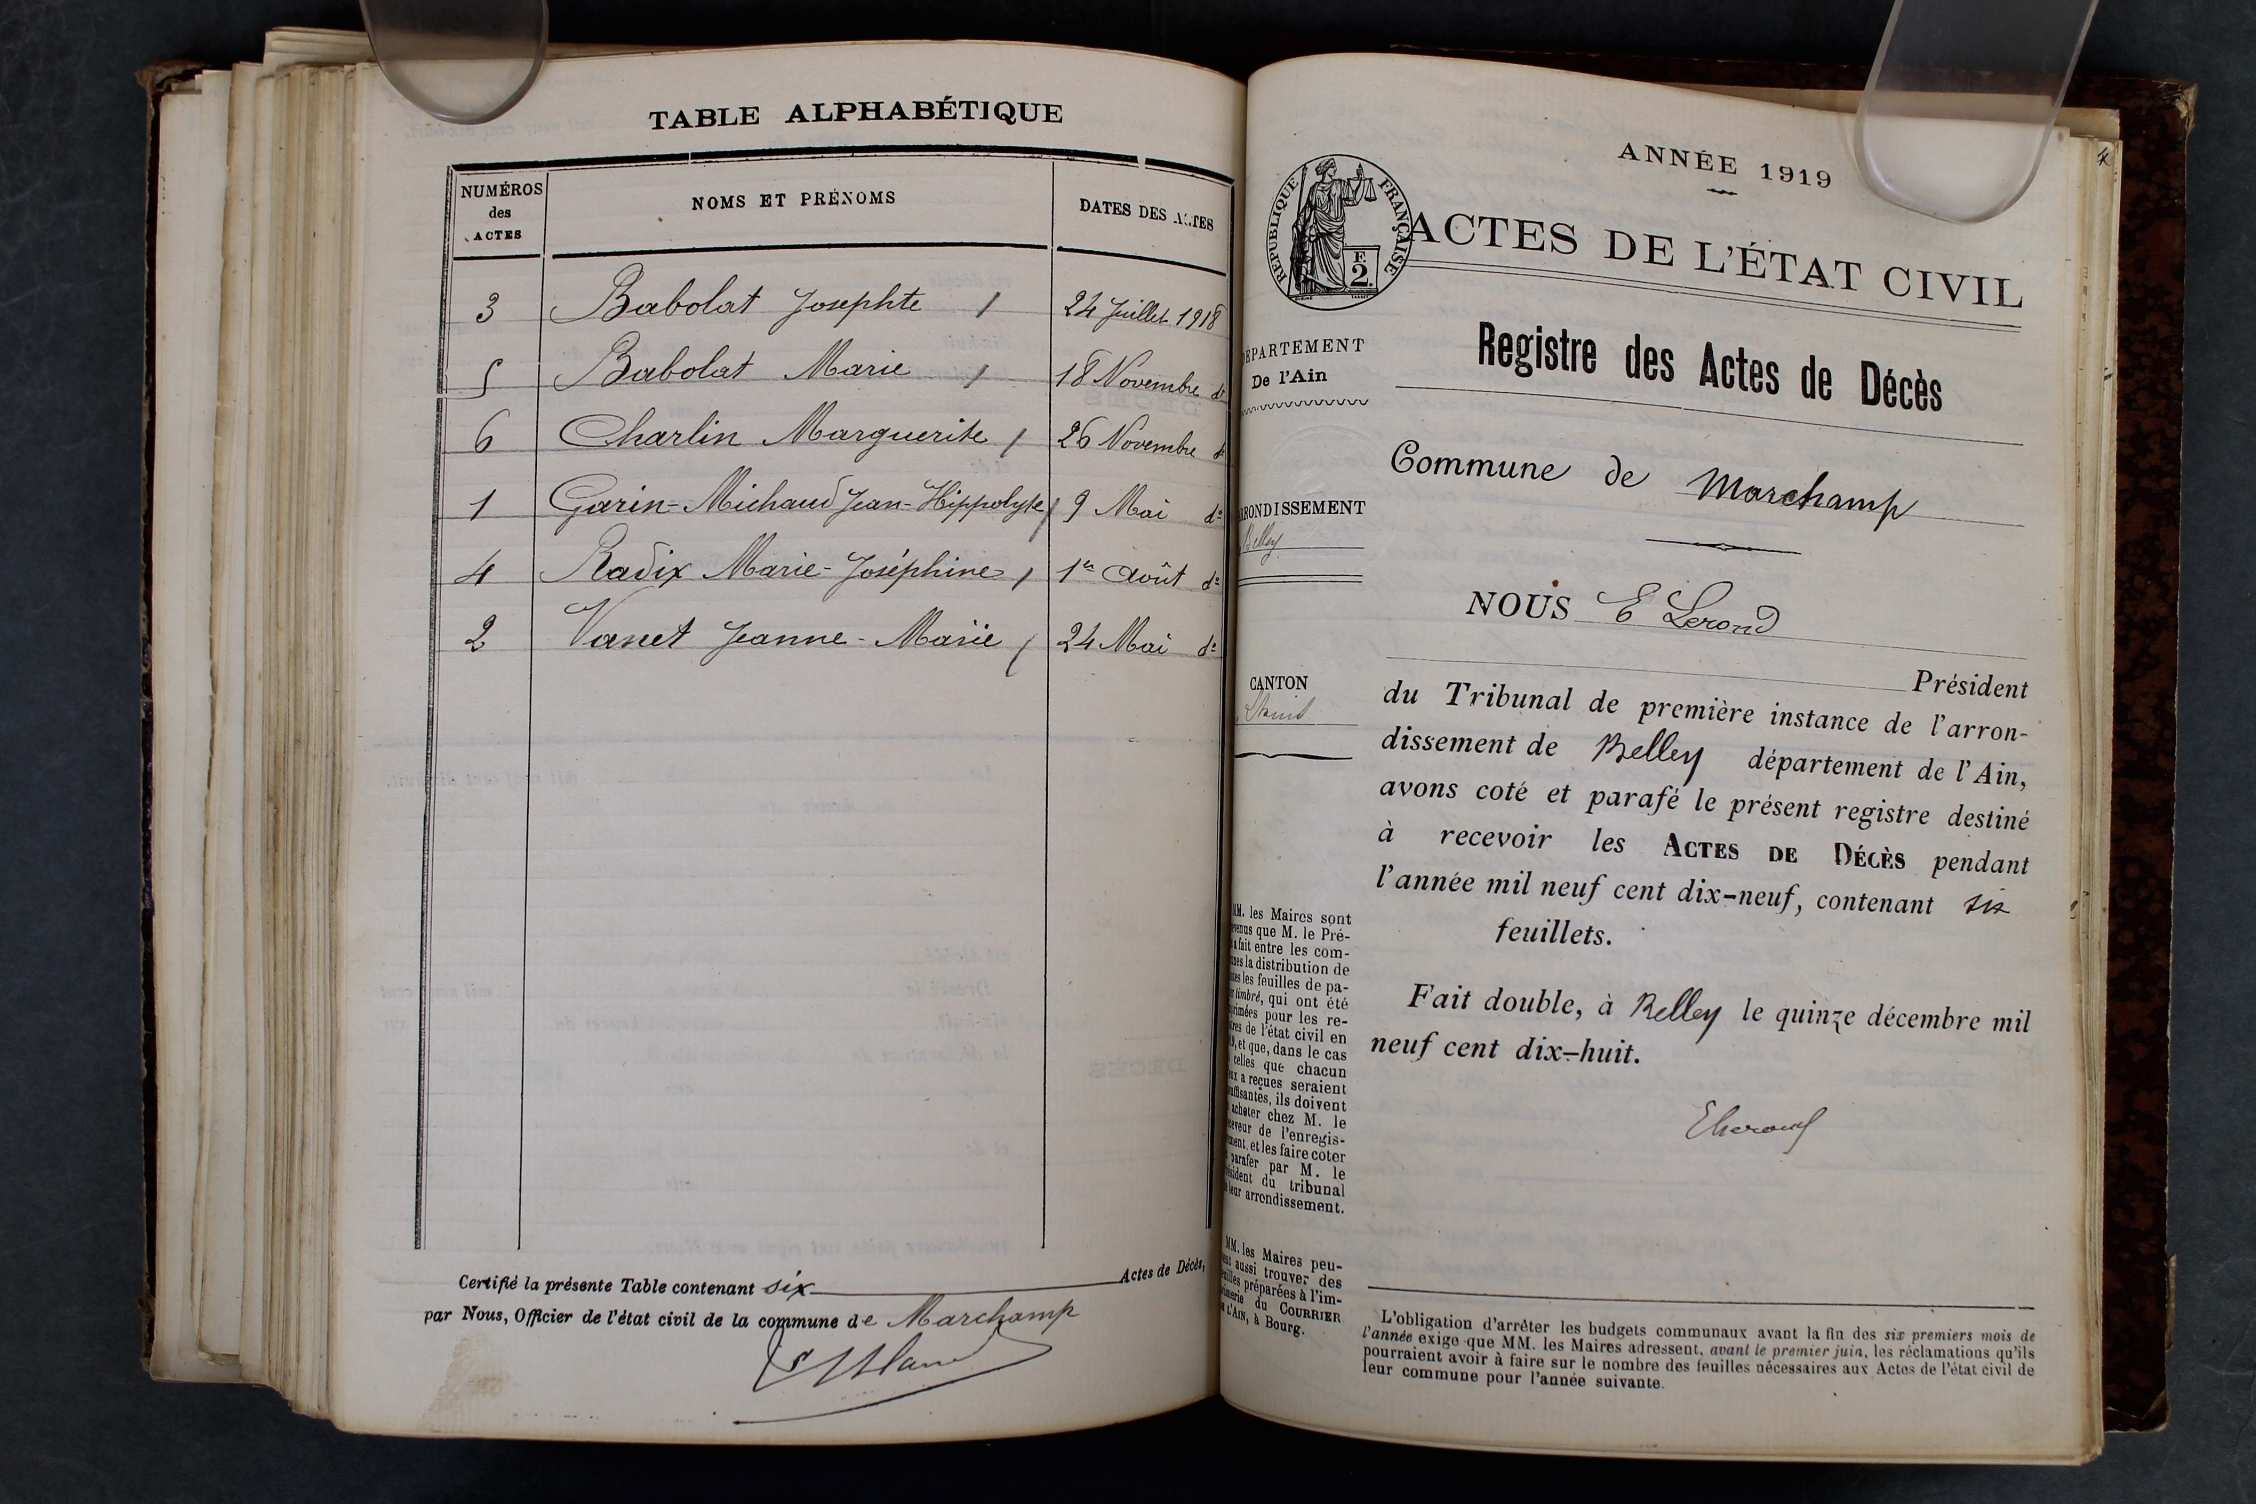 TABLE ALPHABÉTIQUE
NUMÉROS
des
ACTES
NOMS ET PRÉNOMS
DATES DES ACTES
3 Babolat Josephte 24 Juillet 1918
5 Babolat Marie 18 Novembre do
6 Charlin Marguerite 26 Novembre do
1 Garin-Michaud Jean-Hippolyte 9 Mai do
4 Radix Marie-Joséphine 1er Août do
2 Vanet Jeanne-Marie 24 Mai do
Certifié la présente Table contenant six Actes de Décès,
par Nous, Officier de l'état civil de la commune de Marchamp
ANNÉE 1919
RÉPUBLIQUE FRANÇAISE
F.
2.
ACTES DE L'ÉTAT CIVIL
DÉPARTEMENT
De l'Ain
Registre des Actes de Décès
Commune de Marchamp
ARRONDISSEMENT
Belley
NOUS E Lerond
CANTON
Président
du Tribunal de première instance de l'arron-
dissement de Belley département de l'Ain,
avons coté et parafé le présent registre destiné
à recevoir les ACTES DE DÉCÈS pendant
l'année mil neuf cent dix-neuf, contenant six
feuillets.
Fait double, à Belley le quinze décembre mil
neuf cent dix-huit.
MM. les Maires sont
venus que M. le Pré-
a fait entre les com-
nes la distribution de
es les feuilles de pa-
timbré, qui ont été
primées pour les re-
res de l'état civil en
9, et que, dans le cas
celles que chacun
ux a reçues seraient
uffisantes, ils doivent
acheter chez M. le
ceveur de l'enregis-
ment, et les faire coter
parafer par M. le
ésident du tribunal
leur arrondissement.
MM. les Maires peu-
ent aussi trouver des
uilles préparées à l'im-
rimerie du COURRIER
L'AIN, à Bourg.
L'obligation d'arrêter les budgets communaux avant la fin des six premiers mois de
l'année exige que MM. les Maires adressent, avant le premier juin, les réclamations qu'ils
pourraient avoir à faire sur le nombre des feuilles nécessaires aux Actes de l'état civil de
leur commune pour l'année suivante.